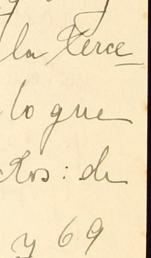 la Terce
lo que
tos: de
y 69